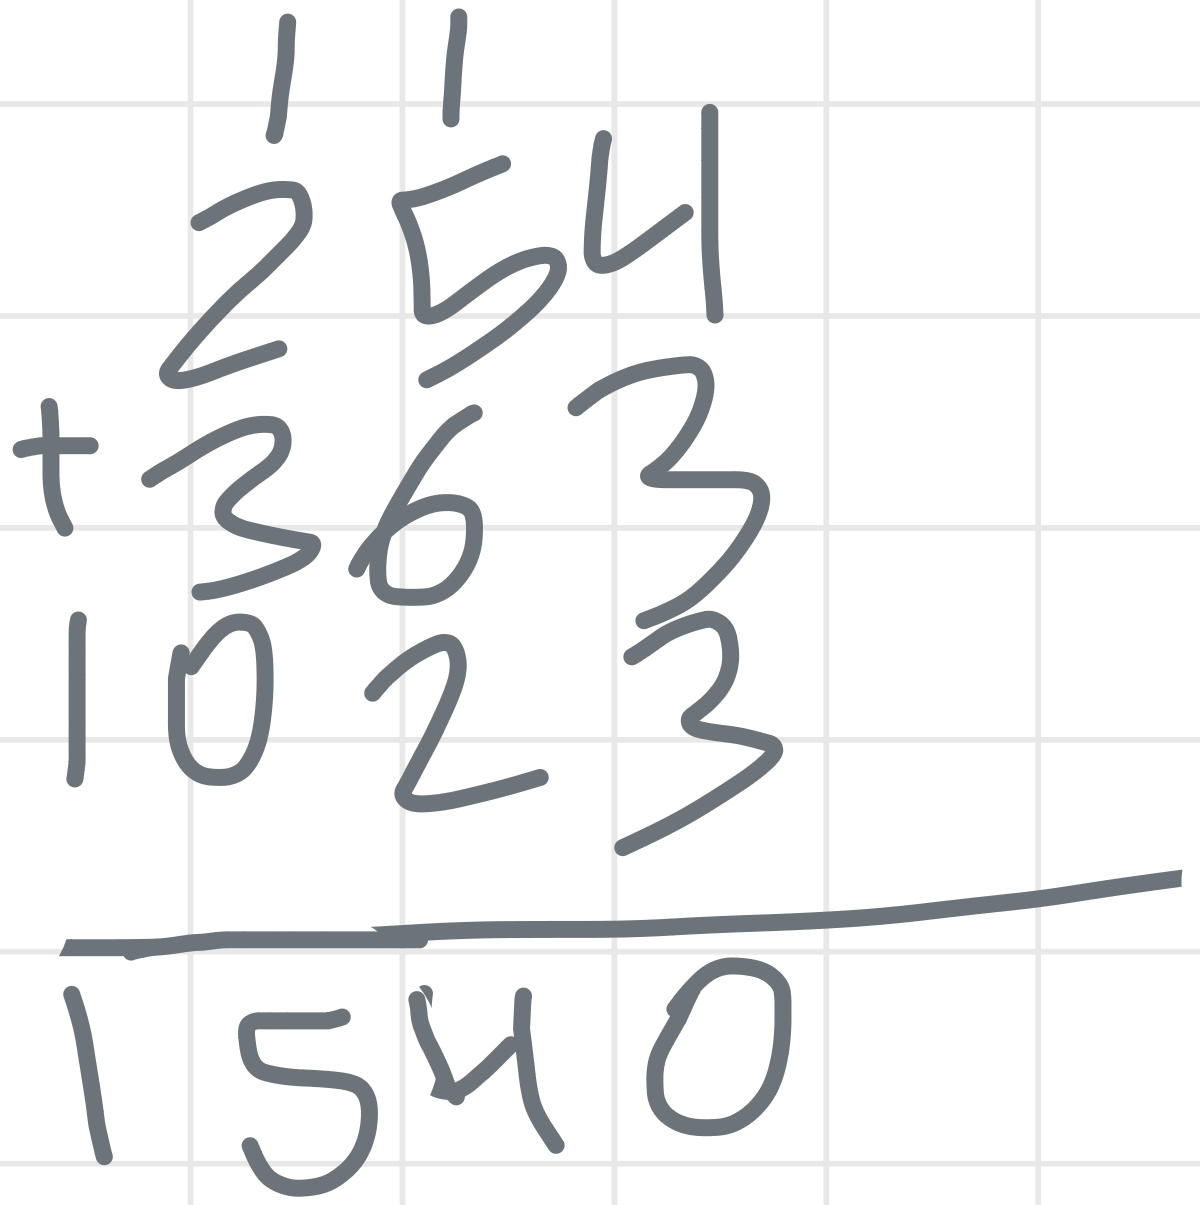 1 1
254
+ 363
1023
1540